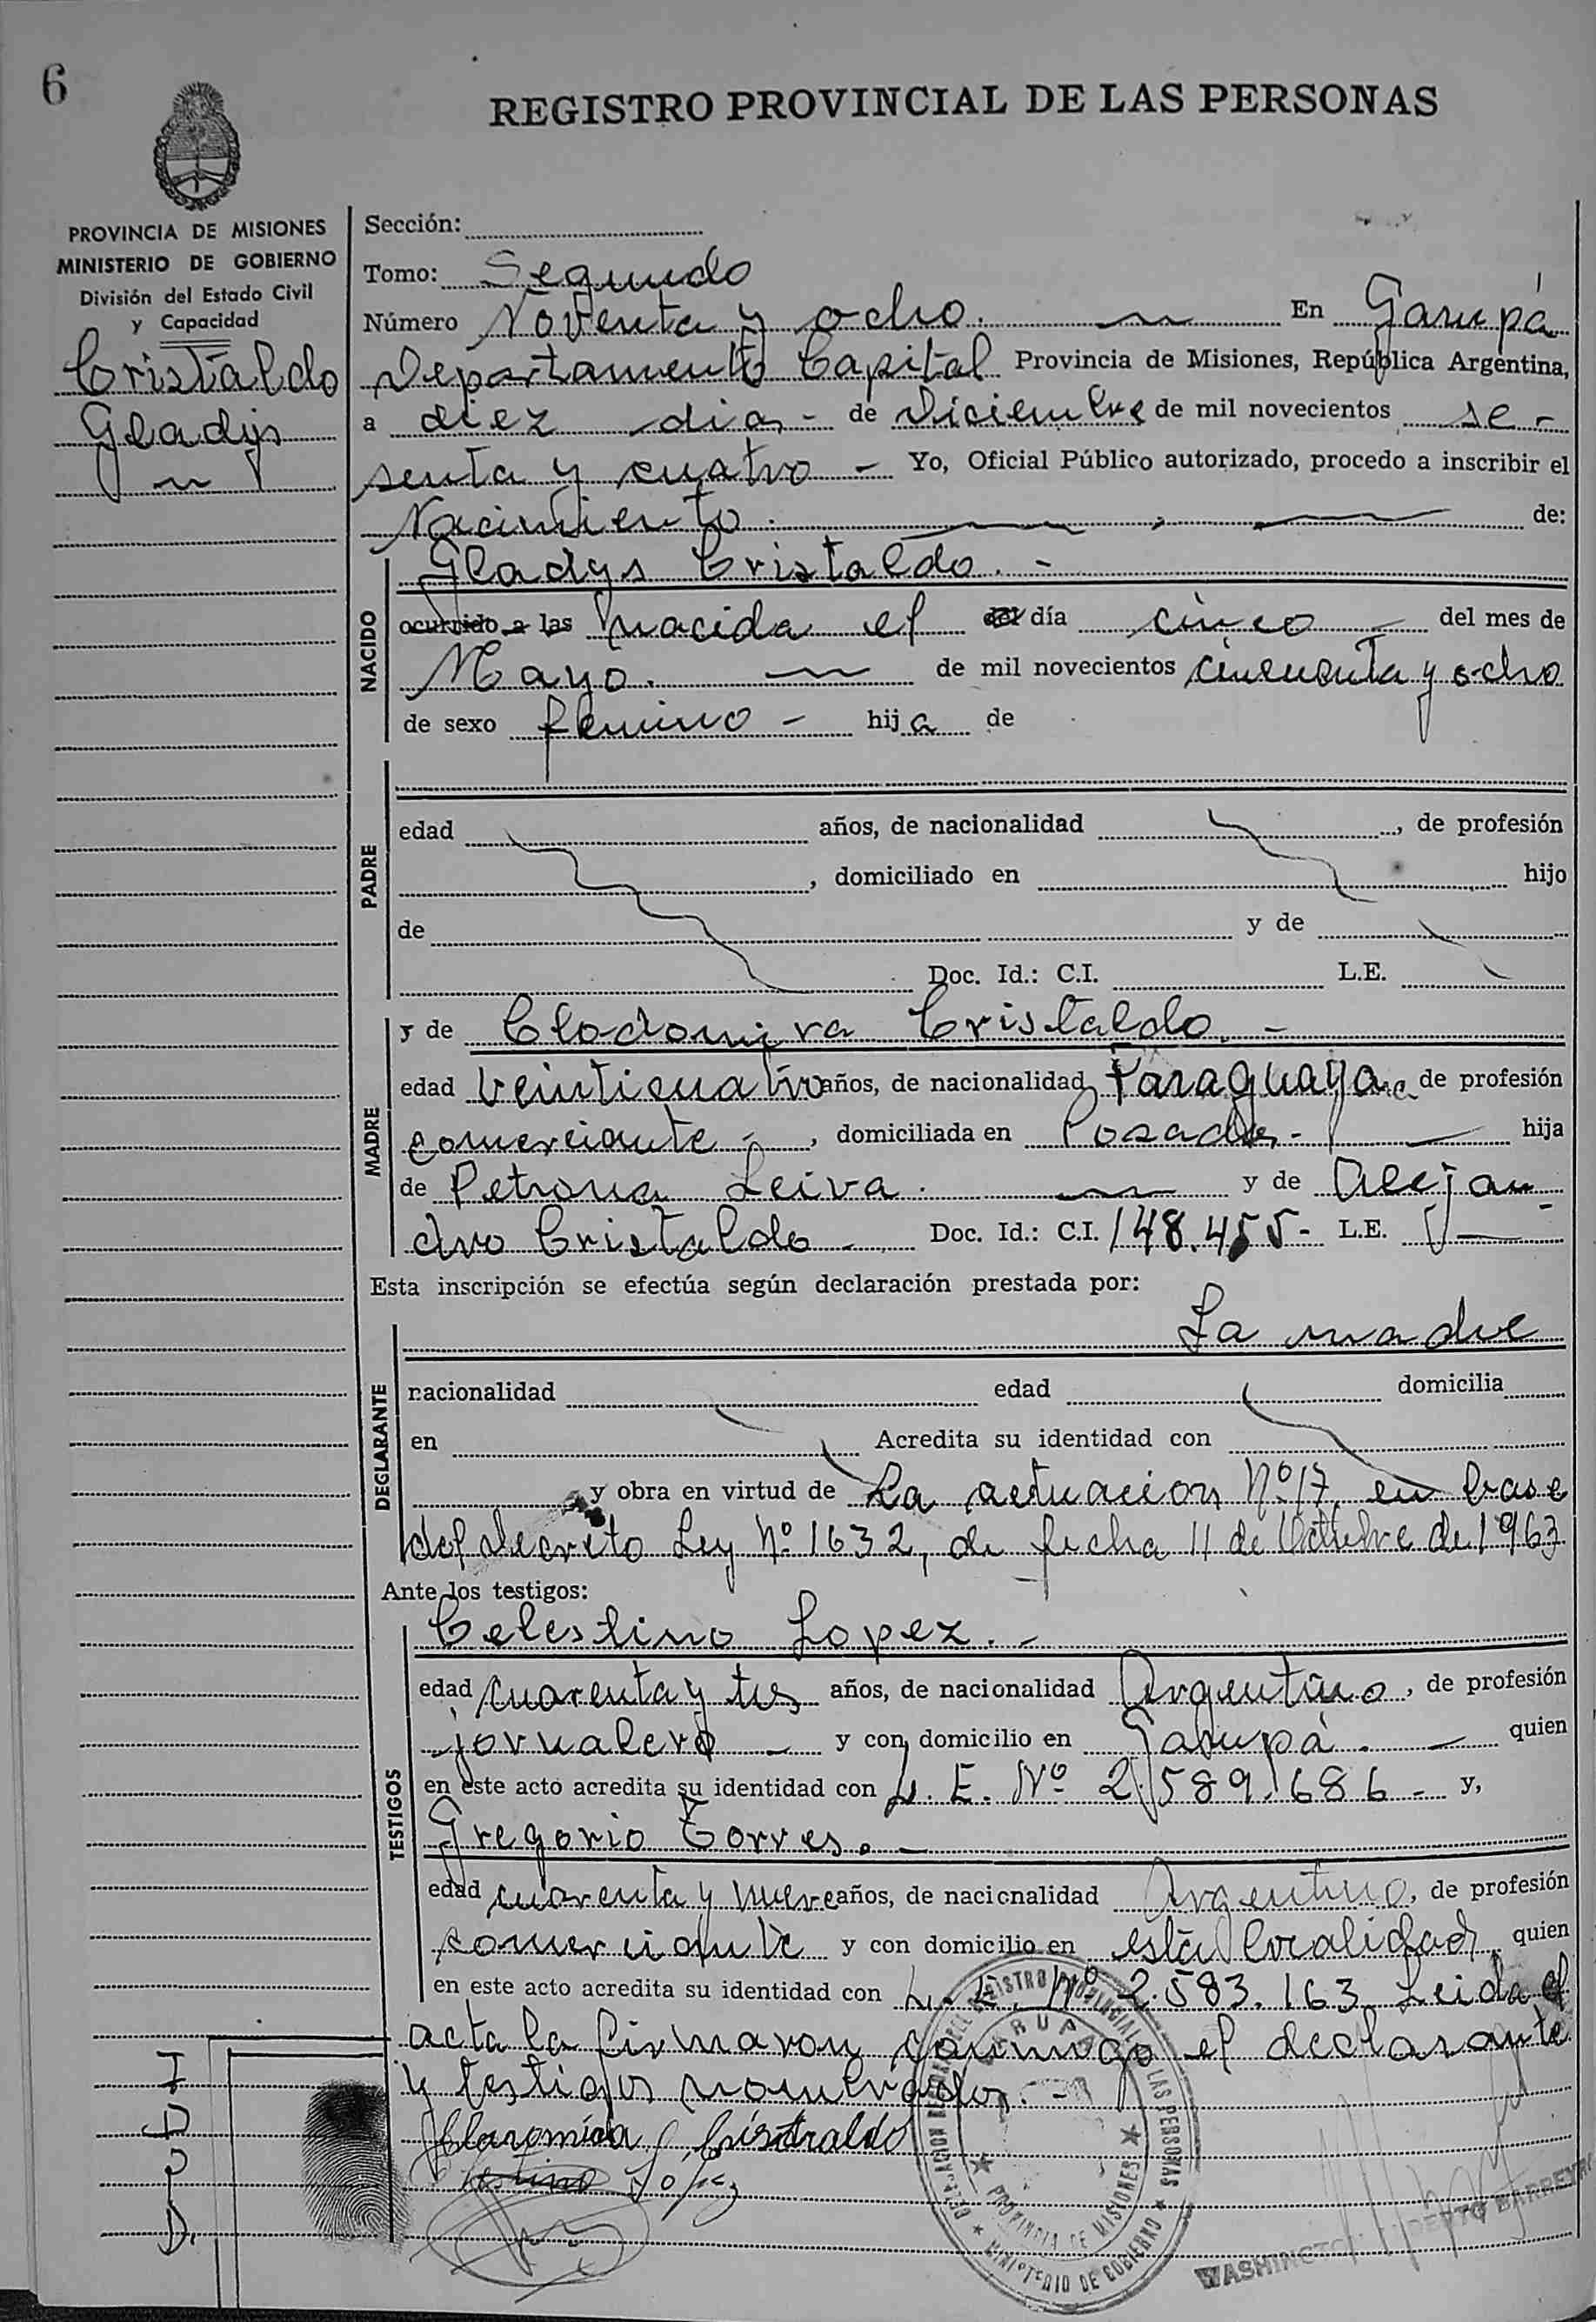 6
REGISTRO PROVINCIAL DE LAS PERSONAS
PROVINCIA DE MISIONES
MINISTERIO DE GOBIERNO
División del Estado Civil
y Capacidad
Cristaldo
Gladys
Sección:
Tomo: Segundo
Número Noventa y ocho. En Garupá
Departamento Capital Provincia de Misiones, República Argentina,
a diez dias - de Diciembre de mil novecientos se-
senta y cuatro - Yo, Oficial Público autorizado, procedo a inscribir el
Nacimiento. de:
NACIDO
Gladys Cristaldo. -
ocurrido a las nacida el del día cinco - del mes de
Mayo. de mil novecientos cincuenta y ocho
de sexo femino - hija de
PADRE
edad años, de nacionalidad , de profesión
, domiciliado en hijo
de y de
Doc. Id.: C.I. L.E.
MADRE
y de Clodomira Cristaldo. -
edad veinticuatro años, de nacionalidad Paraguaya de profesión
comerciante - , domiciliada en Posadas - hija
de Petrona Leiva. y de Alejan
dro Cristaldo - Doc. Id.: C.I. 148.455- L.E. -
Esta inscripción se efectúa según declaración prestada por:
DECLARANTE
La madre
nacionalidad edad domicilia
en Acredita su identidad con
y obra en virtud de La actuacion Nº 17, en base
del Decreto Ley Nº 1632, de fecha 11 de Octubre de 1963
Ante los testigos:
TESTIGOS
Celestino Lopez. -
edad cuarenta y tres años, de nacionalidad Argentino, de profesión
jornalero - y con domicilio en Garupá. - quien
en este acto acredita su identidad con L. E. Nº 2.589.686 - y,
Gregorio Torres. -
edad cuarenta y nueve años, de nacionalidad Argentino, de profesión
comerciante y con domicilio en esta localidad, quien
en este acto acredita su identidad con L. E. Nº 2.583.163. Leida el
acta la firmaron conmigo el declarante
y testigos nombrados. -
I
D
P
D.
Cristraldo
López
GARUPA
REGISTRO PROVINCIAL DE LAS PERSONAS
PROVINCIA DE MISIONES
MINISTERIO DE GOBIERNO
WASHINGTON